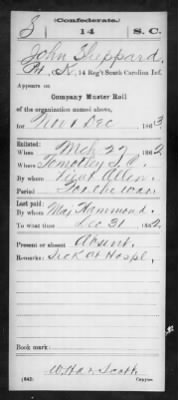 S
(Confederate.)
14
S. C.
John Sheppard
Pvt, Co. K, 14 Reg't South Carolina Inf.
Appears on
Company Muster Roll
of the organization named above,
for Nov & Dec, 1863
Enlisted:
When Mch 27, 1862
Where
By whom Lieut Allen
Period For the war
Last paid:
By whom Maj Hammond
To what time Dec 31, 1862
Present or absent Absent
Remarks: Sick at Hospl.
(642)
Copyist.